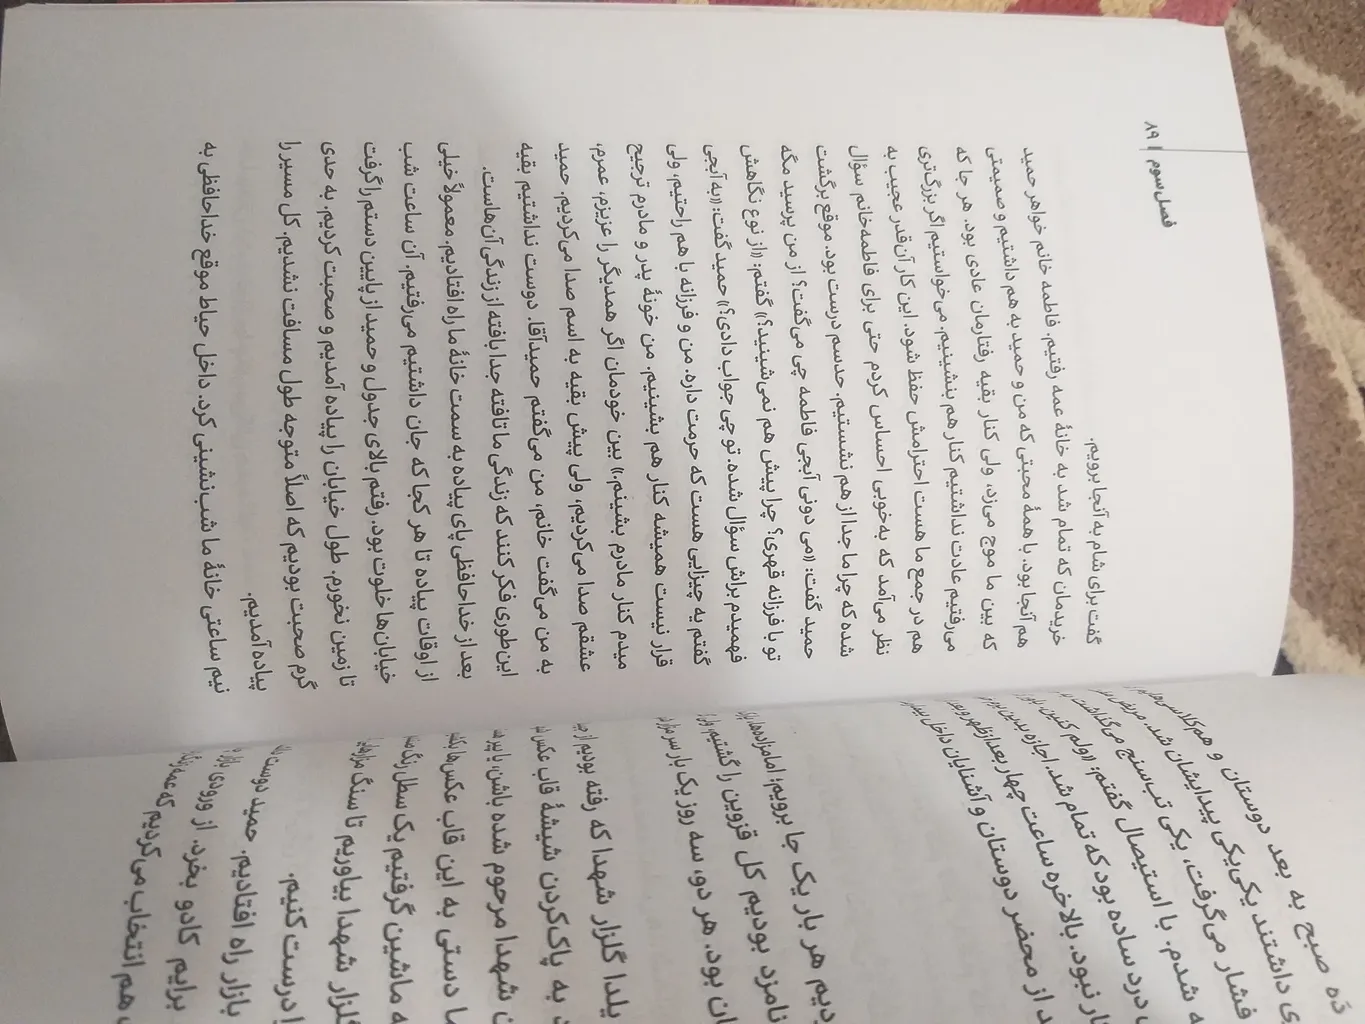 فصل سوم | ۸۹
گفت برای شام به آنجا برویم.
خریدمان که تمام شد به خانهٔ عمه رفتیم. فاطمه خانم خواهر حمید
هم آنجا بود. با همهٔ محبتی که من و حمید به هم داشتیم و صمیمیتی
که بین ما موج می‌زد، ولی کنار بقیه رفتارمان عادی بود. هر جا که
می‌رفتیم عادت نداشتیم کنار هم بنشینیم. می‌خواستیم اگر بزرگ‌تری
هم در جمع ما هست احترامش حفظ شود. این کار آن‌قدر عجیب به
نظر می‌آمد که به‌خوبی احساس کردم حتی برای فاطمه‌خانم سؤال
شده که چرا ما جدا از هم نشستیم. حدسم درست بود. موقع برگشت
حمید گفت: «می دونی آبجی فاطمه چی می‌گفت؟ از من پرسید مگه
تو با فرزانه قهری؟ چرا پیش هم نمی‌شینید؟» گفتم: «از نوع نگاهش
فهمیدم براش سؤال شده. تو چی جواب دادی؟» حمید گفت: «به آبجی
گفتم یه چیزایی هست که حرمت داره. من و فرزانه با هم راحتیم، ولی
قرار نیست همیشه کنار هم بشینیم. من خونهٔ پدر و مادرم ترجیح
میدم کنار مادرم بشینم.» بین خودمان اگر همدیگر را عزیزم، عمرم،
عشقم صدا می‌کردیم، ولی پیش بقیه به اسم صدا می‌کردیم. حمید
به من می‌گفت خانم، من می‌گفتم حمیدآقا. دوست نداشتیم بقیه
این‌طوری فکر کنند که زندگی ما تافته جدا بافته از زندگی آن‌هاست.
بعد از خداحافظی پای پیاده به سمت خانهٔ ما راه افتادیم. معمولاً خیلی
از اوقات پیاده تا هر کجا که جان داشتیم می‌رفتیم. آن ساعت شب
خیابان‌ها خلوت بود. رفتم بالای جدول و حمید از پایین دستم را گرفت
تا زمین نخورم. طول خیابان را پیاده آمدیم و صحبت کردیم. به حدی
گرم صحبت بودیم که اصلاً متوجه طول مسافت نشدیم. کل مسیر را
پیاده آمدیم.
نیم ساعتی خانهٔ ما شب‌نشینی کرد. داخل حیاط موقع خداحافظی به
ده صبح به بعد دوستان و هم‌کلاسی‌هایم
ی داشتند یکی‌یکی پیدایشان شد.
فشار می‌گرفت، یکی تب‌سنج می‌گذاشت
ه شدم. با استیصال گفتم: «ولم کنین
درد ساده بود که تمام شد. اجازه بدین
ار نبود. بالاخره ساعت چهار بعدازظهر
د از محضر دوستان و آشنایان داخل
دیم هر بار یک جا برویم؛ امامزاده‌ها
نامزد بودیم کل قزوین را گشتیم، ولی
ان بود. هر دو، سه روز یک بار سر
یلدا گلزار شهدا که رفته بودیم از
د به پاک‌کردن شیشهٔ قاب عکس
ن شهدا مرحوم شده باشن، یا پیر
ا دستی به این قاب عکس‌ها
ه ماشین گرفتیم یک سطل رنگ
گلزار شهدا بیاوریم تا سنگ
ا درست کنیم.
بازار راه افتادیم. حمید دوست
برایم کادو بخرد. از ورودی بازار
هم انتخاب می‌کردیم که عمه